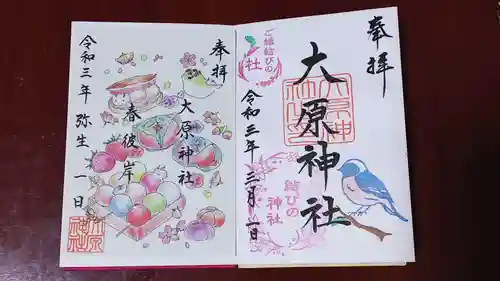 奉拝
大原神社
令和三年三月一日
ご縁結びの
社
結びの
神社
奉拝
大原神社
春彼岸
令和三年弥生一日